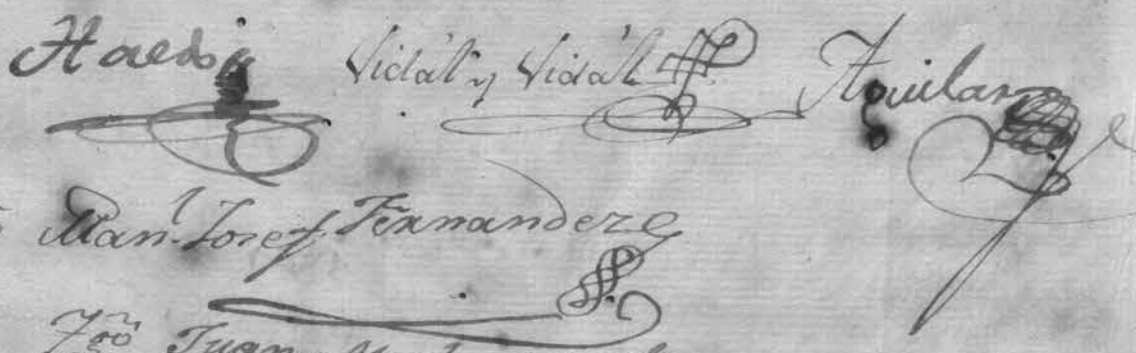 Haedo Vidál y Vidál Aguilar
Man.l Josef Fernandez
Juan